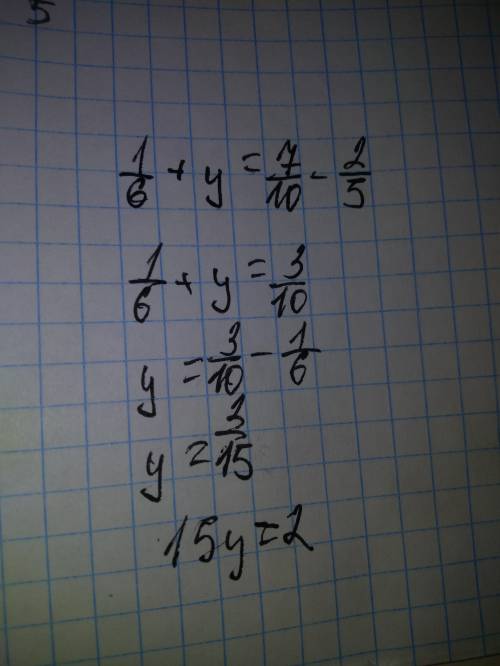 5
1/6 + y = 7/10 - 2/5
1/6 + y = 3/10
y = 3/10 - 1/6
y = 3/15
15y = 2